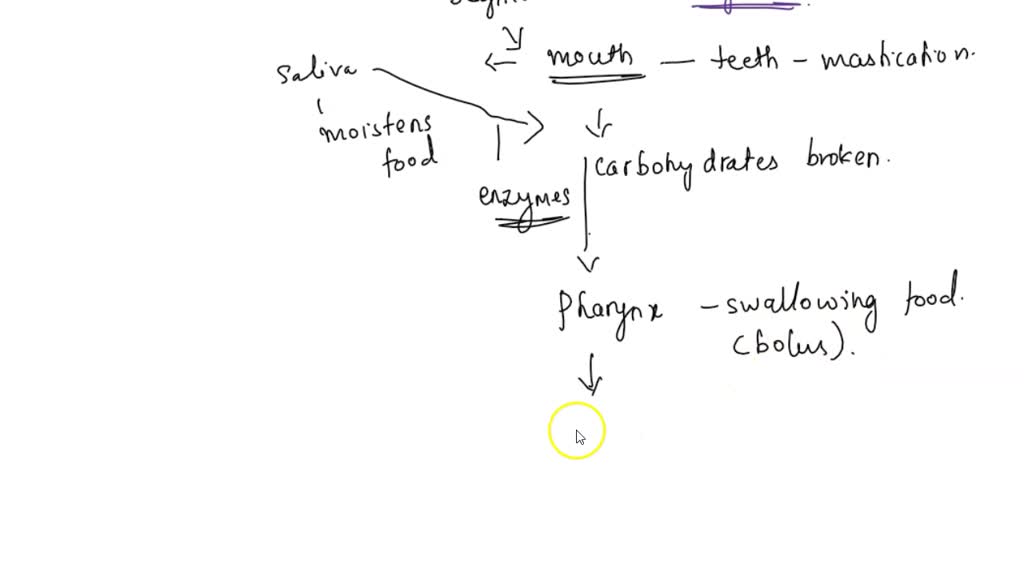 mouth — teeth - mastication.
saliva
moistens
food
carbohydrates broken.
enzymes
Pharynx - swallowing food.
(bolus).